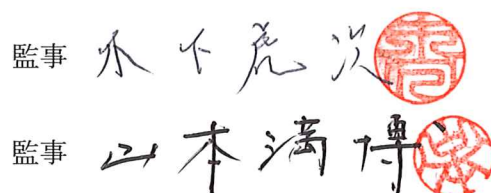 監事 木下虎次
監事 山本満博